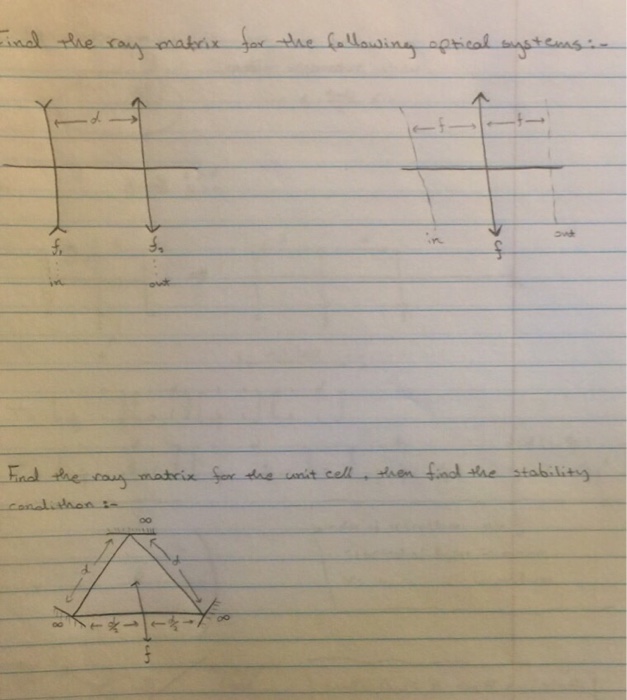 Find the ray matrix for the following optical systems:-
d
f f
f₁ f₂
in out
in f out
Find the ray matrix for the unit cell, then find the stability
condithon :-
∞
d d
∞ d/2 d/2 ∞
f